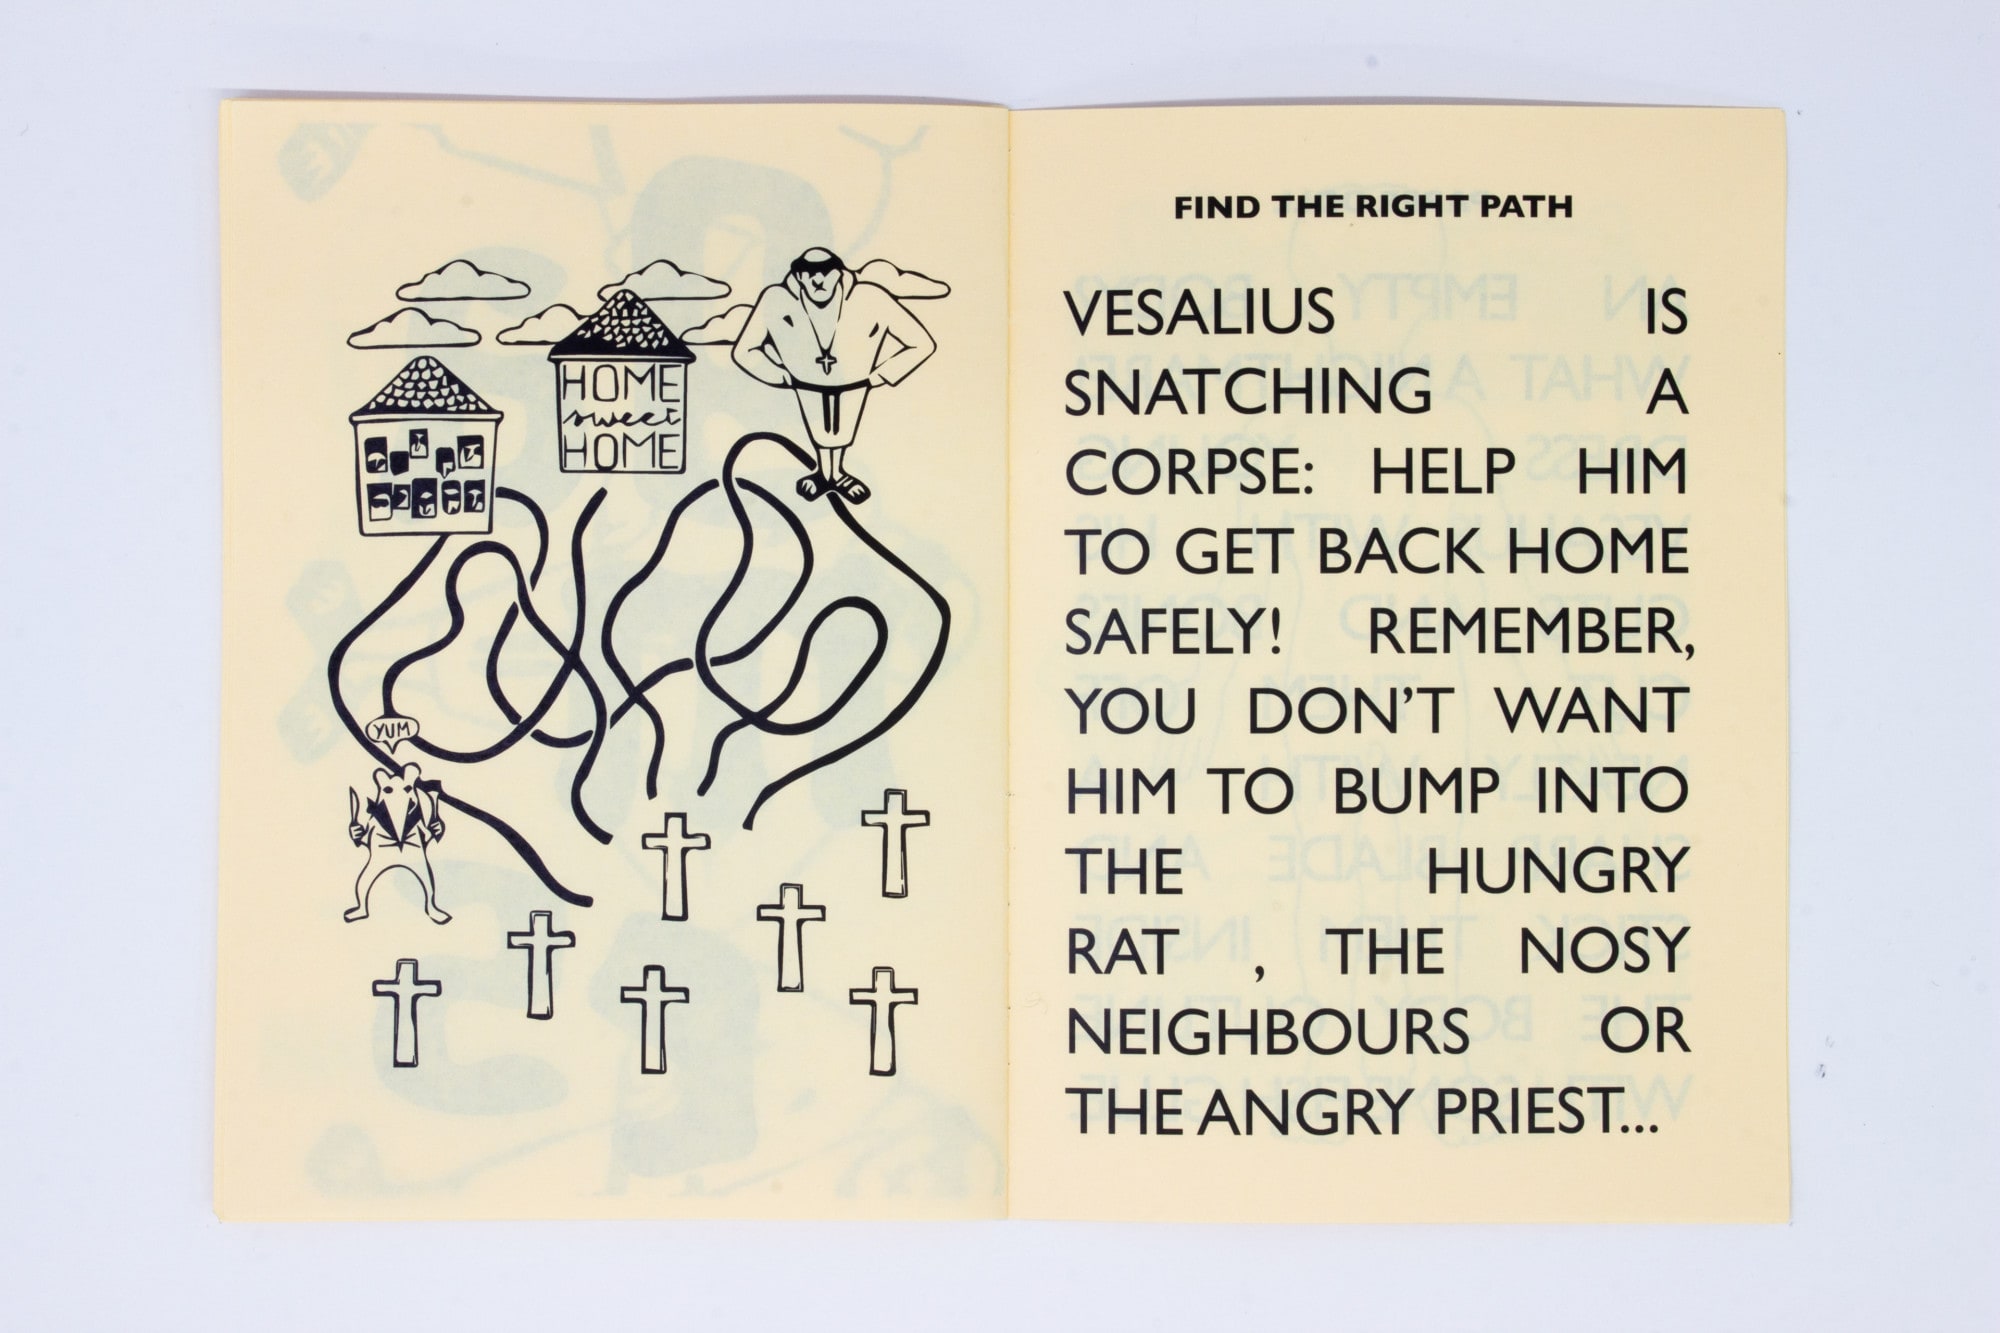 HOME
sweet
HOME
YUM
FIND THE RIGHT PATH
VESALIUS IS
SNATCHING A
CORPSE: HELP HIM
TO GET BACK HOME
SAFELY! REMEMBER,
YOU DON'T WANT
HIM TO BUMP INTO
THE HUNGRY
RAT , THE NOSY
NEIGHBOURS OR
THE ANGRY PRIEST...